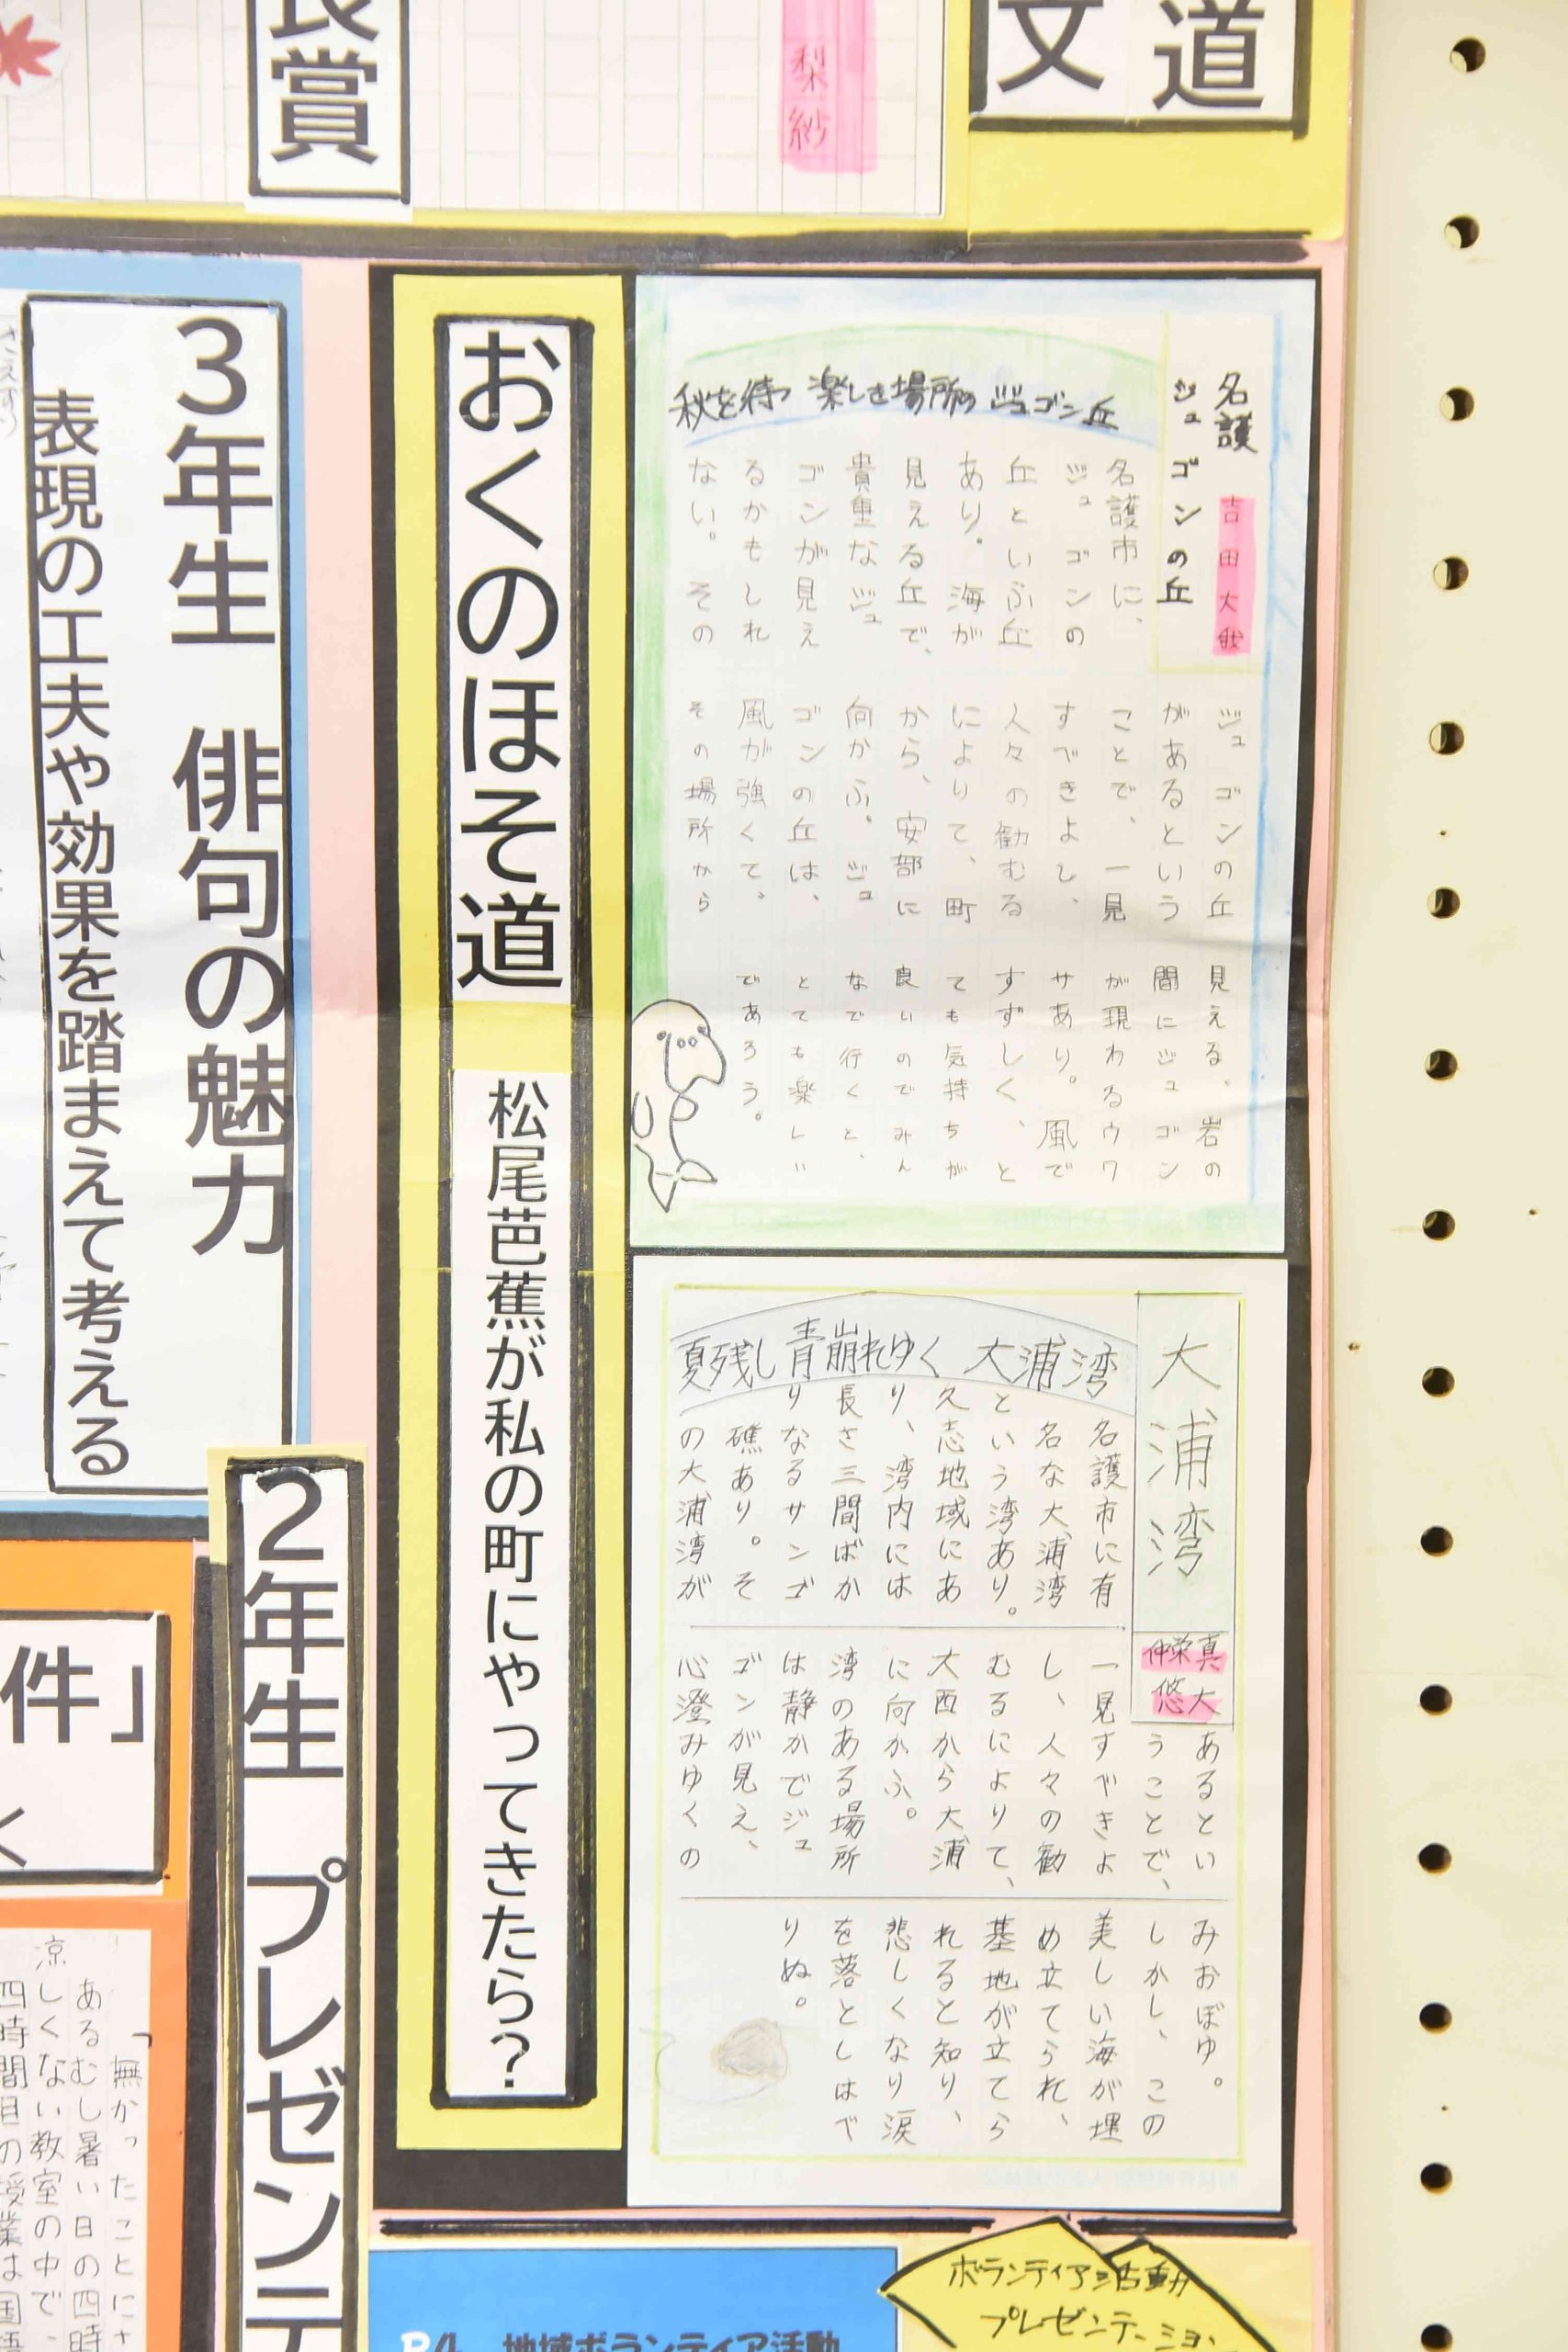 道
文
梨紗
長賞
名護
ジュゴンの丘
吉田大我
秋を待つ 楽しき場所の ジュゴン丘
名護市に、
ジュゴンの
丘といふ丘
あり。海が
見える丘で、
貴重なジュ
ゴンが見え
るかもしれ
ない。その
ジュゴンの丘
があるという
ことで、一見
すべきよし、
人々の勧むる
によりて、町
から、安部に
向かふ。ジュ
ゴンの丘は、
風が強くて、
その場所から
見える、岩の
間にジュゴン
が現わるウワ
サあり。風で
すずしく、と
ても気持ちが
良いのでみん
なで行くと、
とても楽しい
であろう。
大浦湾
真栄仲
大悠
夏残し 青崩れゆく 大浦湾
名護市に有
名な大浦湾
という湾あり。
久志地域にあ
り、湾内には
長さ三間ばか
りなるサンゴ
礁あり。そ
の大浦湾が
あるとい
うことで、
一見すべきよ
し、人々の勧
むるによりて、
大西から大浦
に向かふ。
湾のある場所
は静かでジュ
ゴンが見え、
心澄みゆくの
みおぼゆ。
しかし、この
美しい海が埋
め立てられ、
基地が立てら
れると知り、
悲しくなり涙
を落としはべ
りぬ。
おくのほそ道
松尾芭蕉が私の町にやってきたら?
3年生 俳句の魅力
表現の工夫や効果を踏まえて考える
2年生 プレゼンテ
件」
「無かったことにさ
あるむし暑い日の四時
涼しくない教室の中で、
四時間目の授業は国語
ボランティア活動
プレゼンテーション
地域ボランティア活動